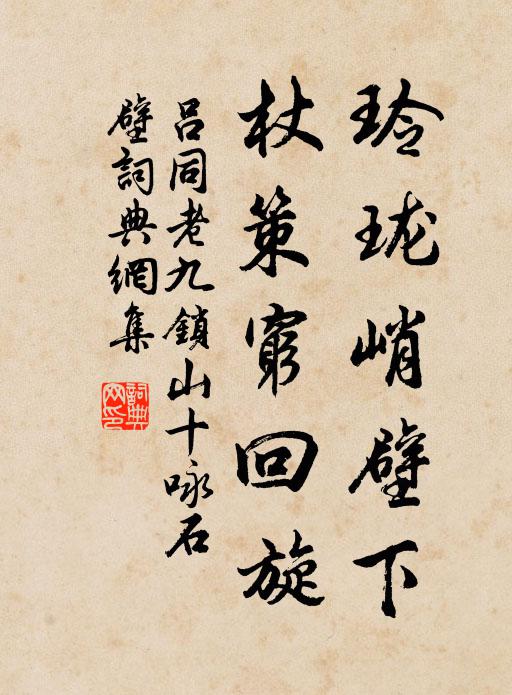 玲珑峭壁下
杖策窮回旋
吕同老九鎖山十咏石
壁詞典網集
詞典
网印